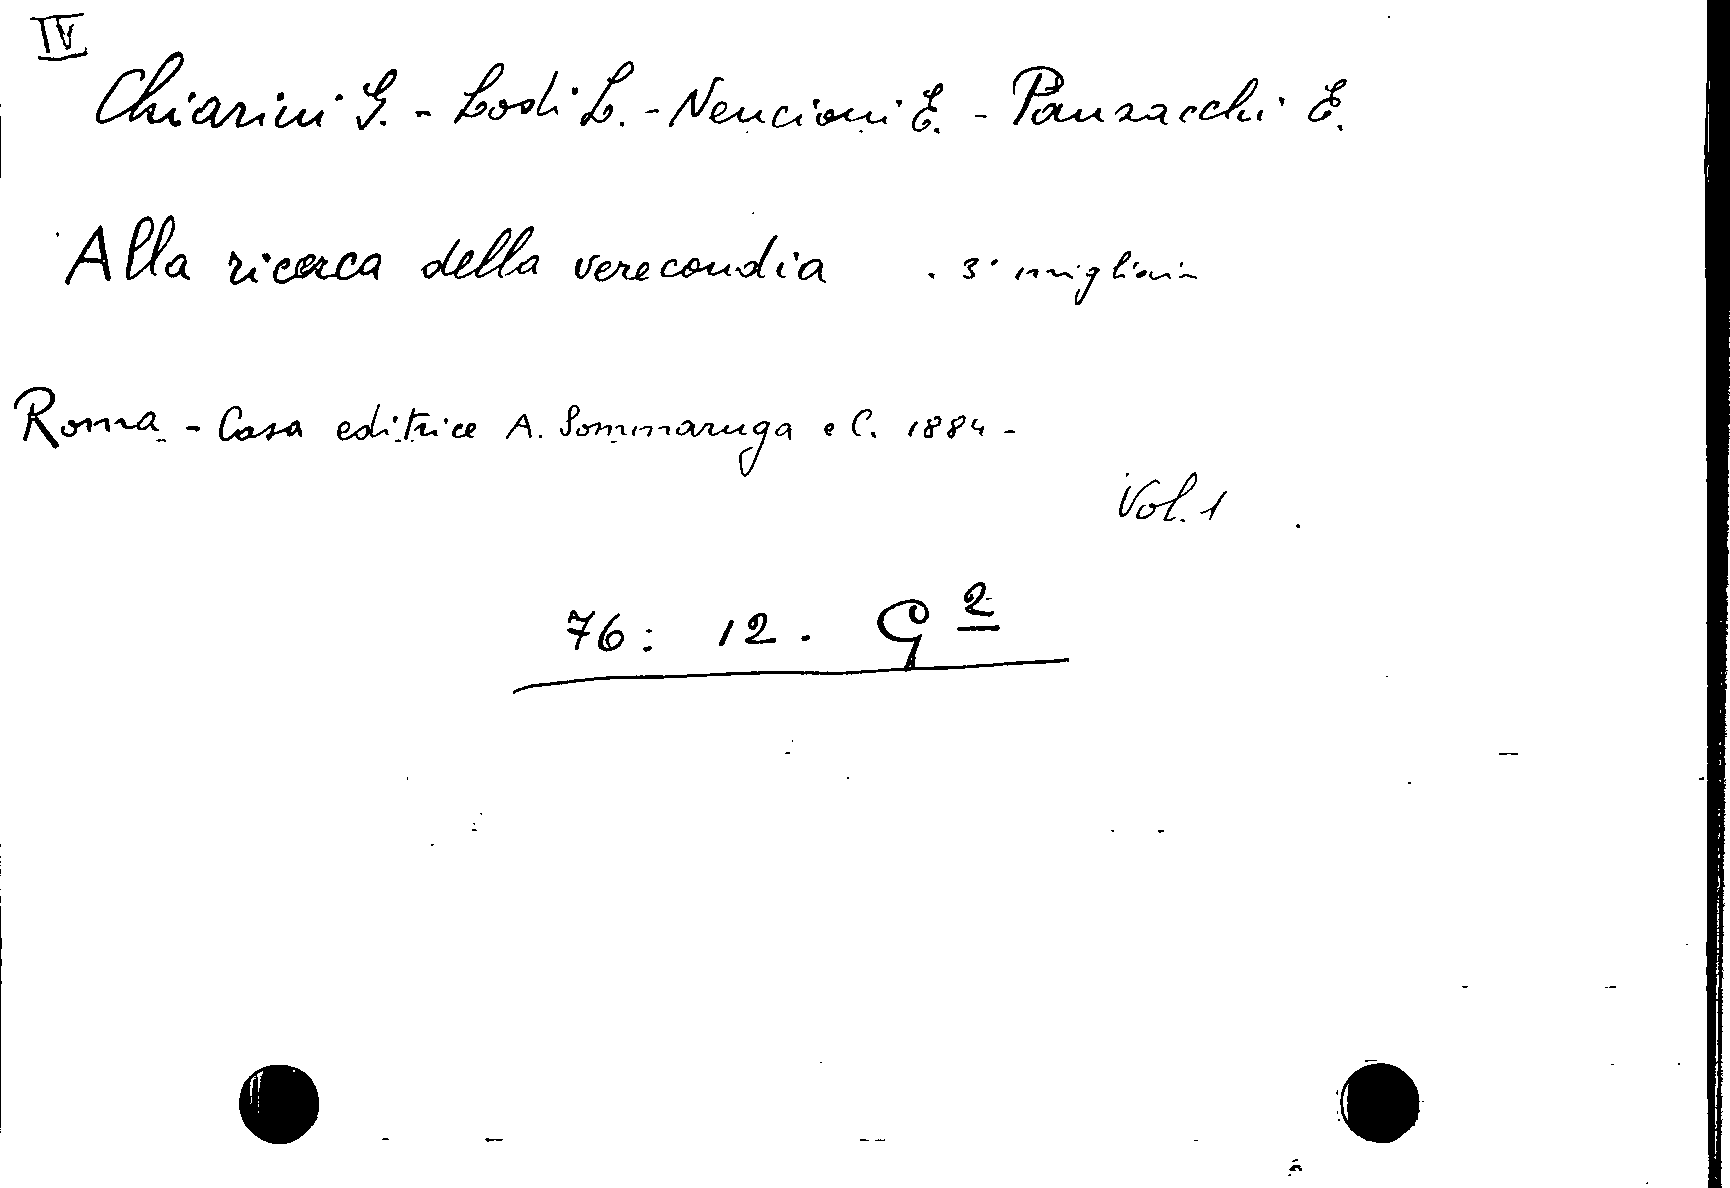 IV
Chiarini G. - Lodi L. - Nencioni E. - Panzacchi E.
Alla ricerca della verecondia . 3° migliaio
Roma - Casa editrice A. Sommaruga e C. 1884 -
Vol. 1
76: 12. G 2